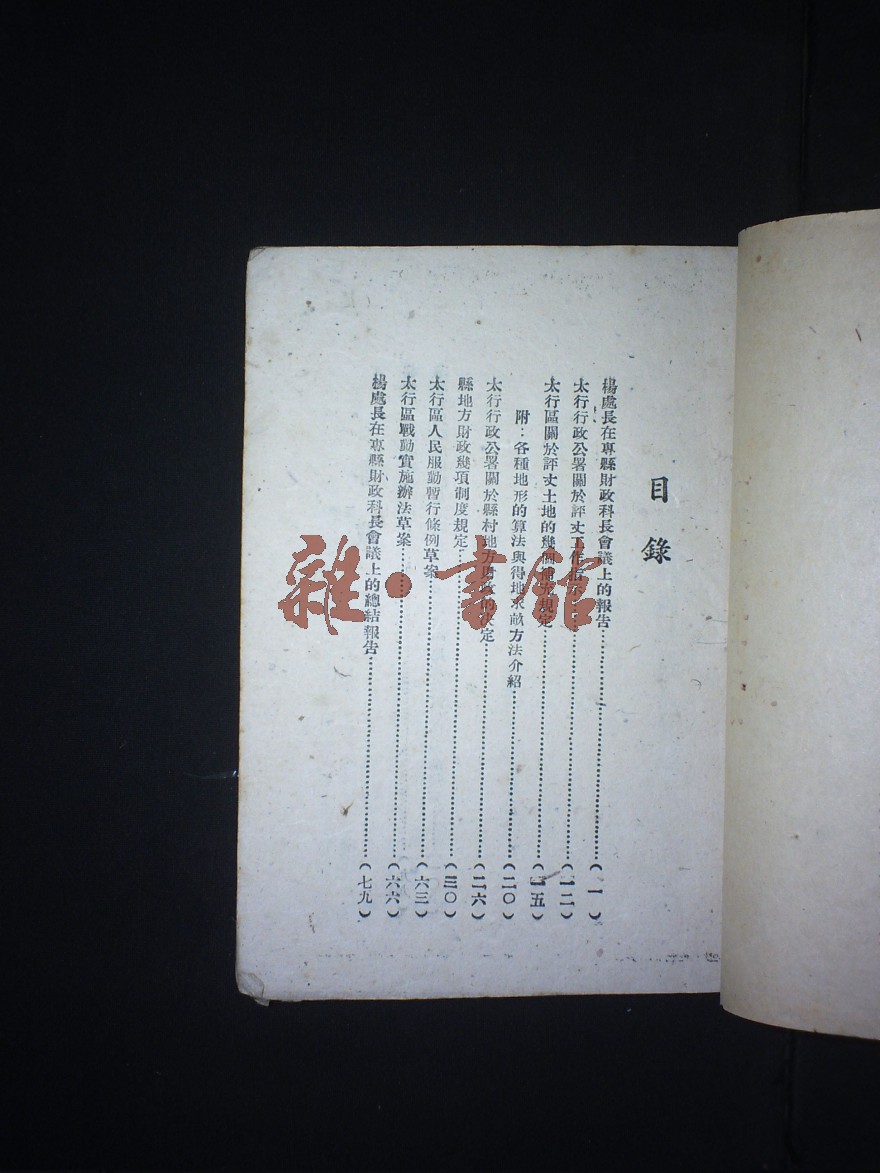 目錄
楊處長在專縣財政科長會議上的報告……(一)
太行行政公署關於評丈工作指示……(一二)
太行區關於評丈土地的幾個補充規定……(一五)
附：各種地形的算法與得地求畝方法介紹……(二〇)
太行行政公署關於縣村地方財政的決定……(二六)
縣地方財政幾項制度規定……(三〇)
太行區人民服勤暫行條例草案……(六三)
太行區戰勤實施辦法草案……(六六)
楊處長在專縣財政科長會議上的總結報告……(七九)
雜·書館